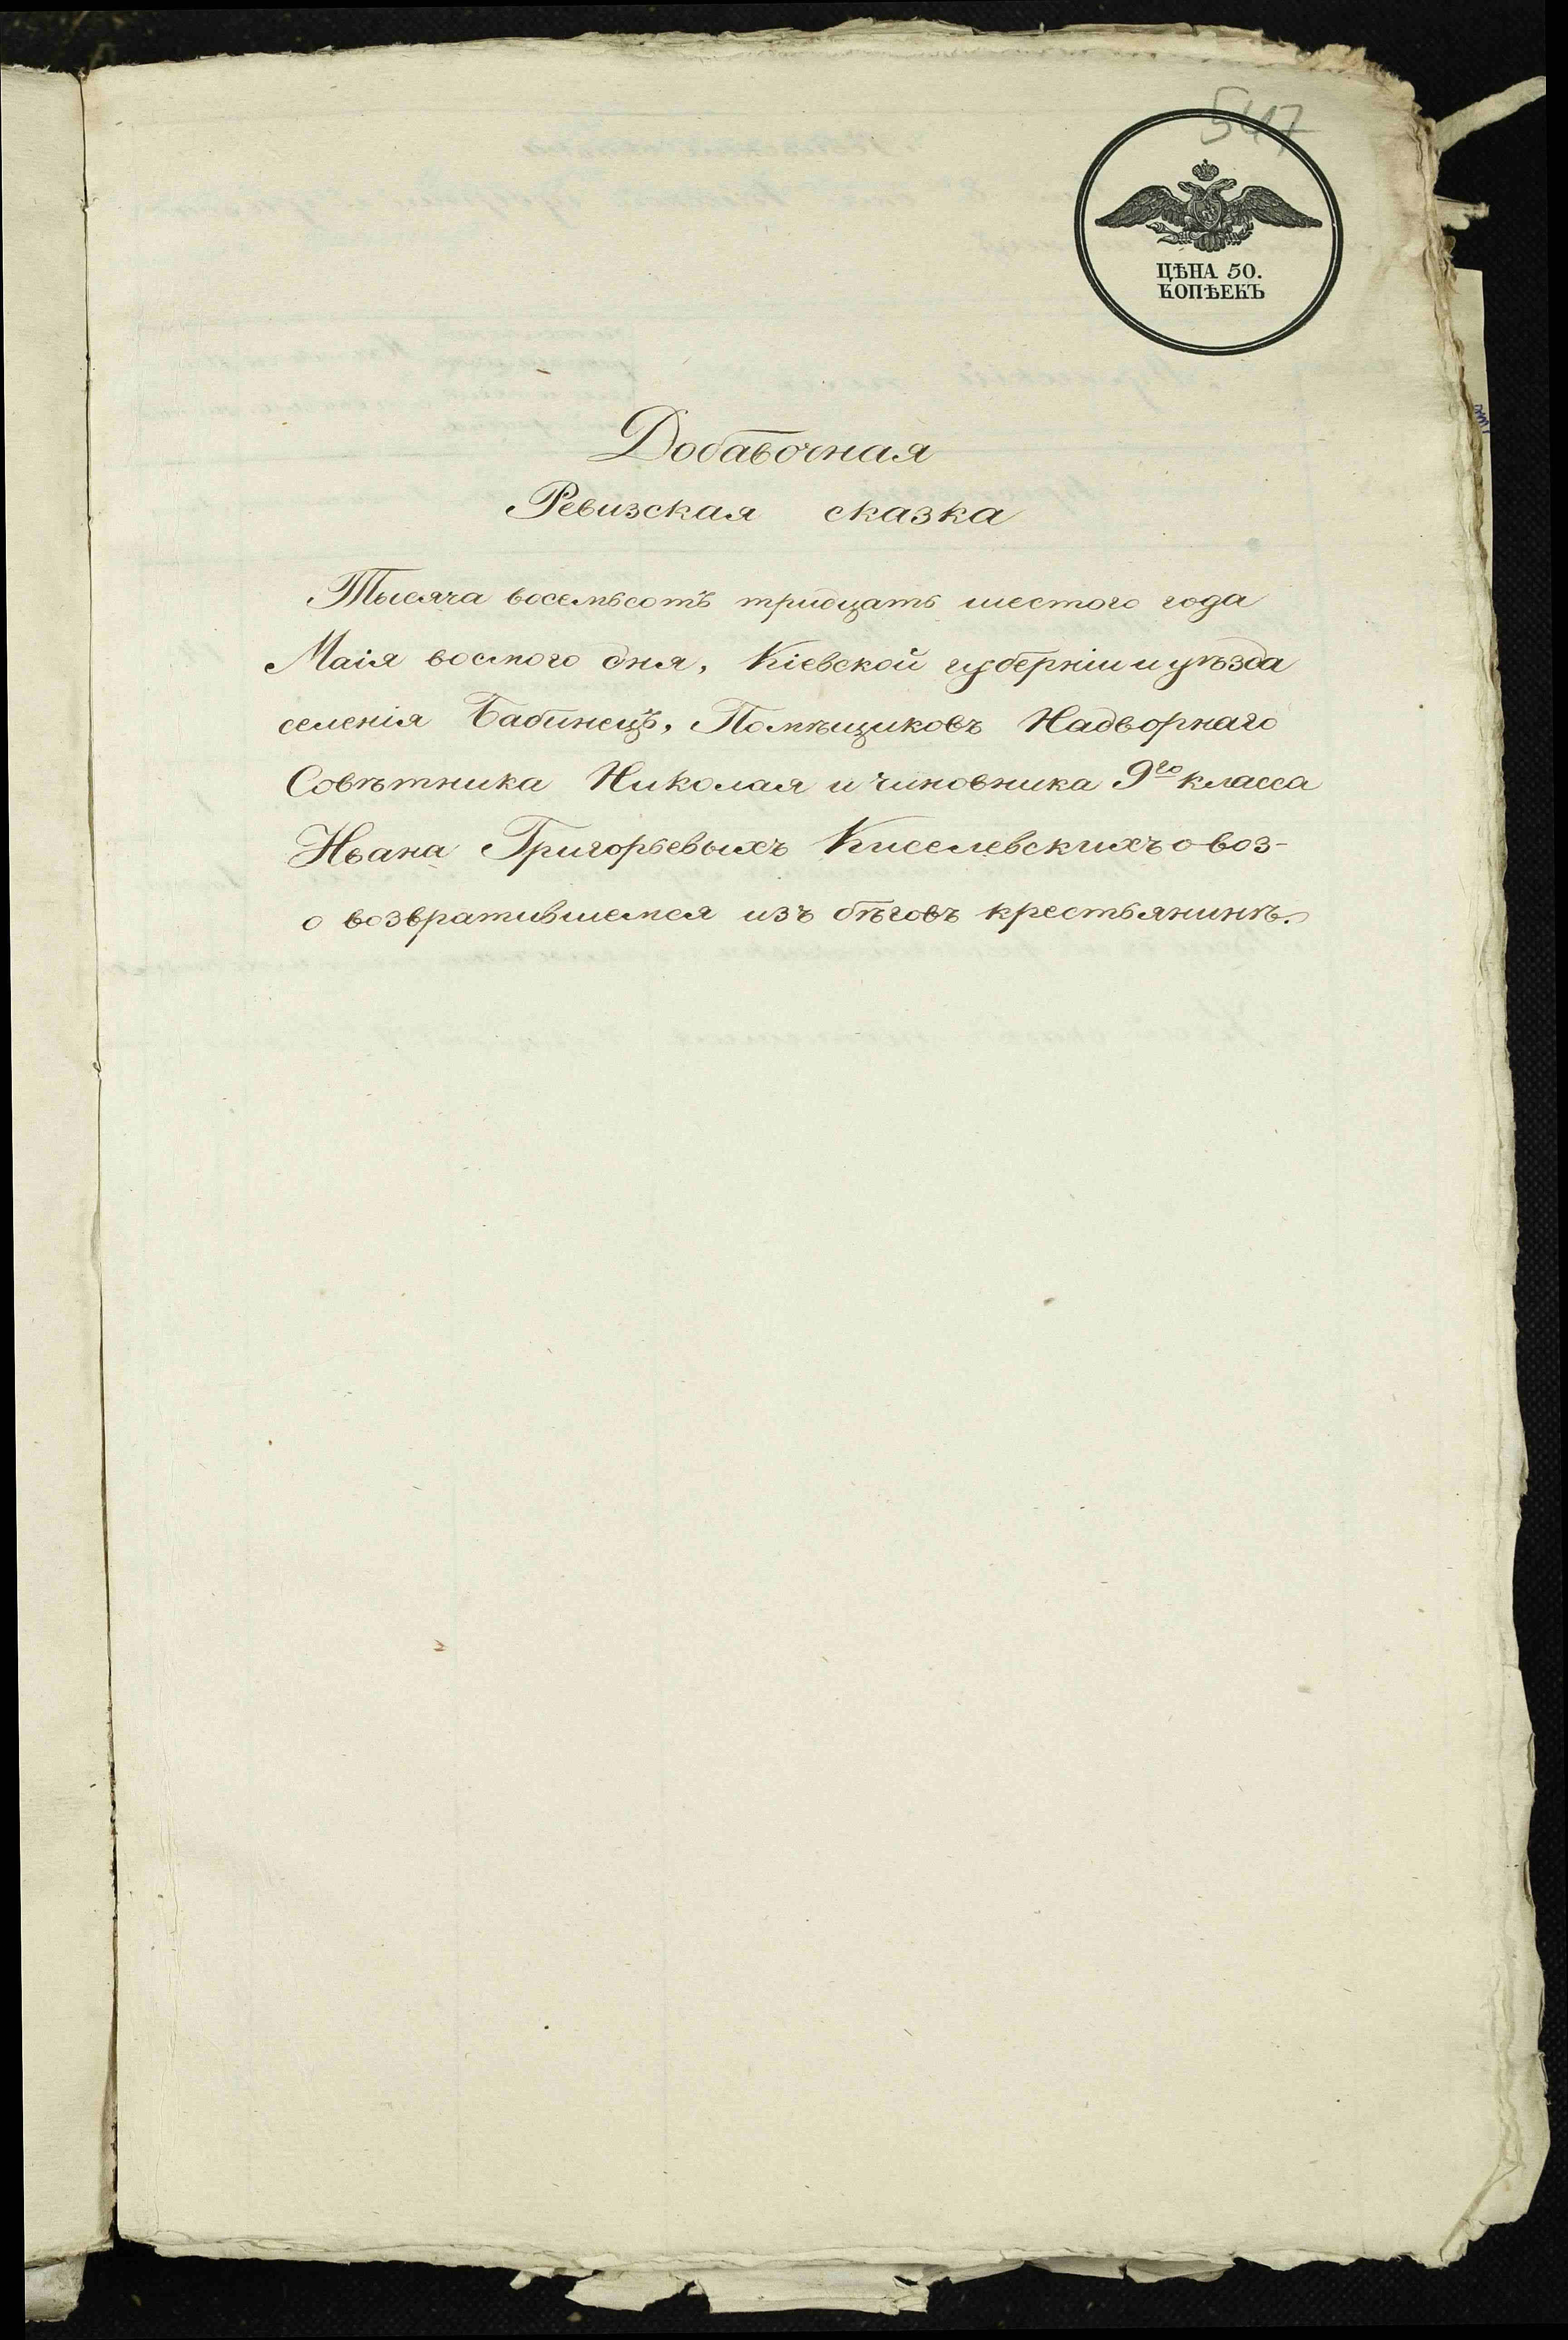 547
ЦѢНА 50.
КОПѢЕКЪ
Добавочная
Ревизская сказка
Тысяча восемьсотъ тридцать шестого года
Маія восмого дня, Кіевской губерніи и уѣзда
селенія Бабинецъ, Помѣщиковъ Надворнаго
Совѣтника Николая и чиновника 9го класса
Ивана Григорьевыхъ Киселевскихъ о воз-
о возвратившемся изъ бѣговъ крестьянинѣ.